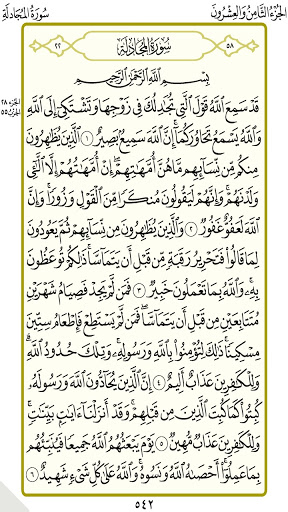 الجُزْءُ الثَّامِنُ وَالعِشْرُونَ
سُورَةُ المُجَادِلَةِ
٥٨
سُورَةُ المُجَادِلَةِ
٢٢
الجزء ٢٨
الحزب ٥٥
بِسْمِ اللَّهِ الرَّحْمَٰنِ الرَّحِيمِ
قَدْ سَمِعَ اللَّهُ قَوْلَ الَّتِي تُجَادِلُكَ فِي زَوْجِهَا وَتَشْتَكِي إِلَى اللَّهِ
وَاللَّهُ يَسْمَعُ تَحَاوُرَكُمَا إِنَّ اللَّهَ سَمِيعٌ بَصِيرٌ ١ الَّذِينَ يُظَاهِرُونَ
مِنكُم مِّن نِّسَائِهِم مَّا هُنَّ أُمَّهَاتِهِمْ إِنْ أُمَّهَاتُهُمْ إِلَّا الَّتِي
وَلَدْنَهُمْ وَإِنَّهُمْ لَيَقُولُونَ مُنكَرًا مِّنَ الْقَوْلِ وَزُورًا وَإِنَّ
اللَّهَ لَعَفُوٌّ غَفُورٌ ٢ وَالَّذِينَ يُظَاهِرُونَ مِن نِّسَائِهِمْ ثُمَّ يَعُودُونَ
لِمَا قَالُوا فَتَحْرِيرُ رَقَبَةٍ مِّن قَبْلِ أَن يَتَمَاسَّا ذَٰلِكُمْ تُوعَظُونَ
بِهِ وَاللَّهُ بِمَا تَعْمَلُونَ خَبِيرٌ ٣ فَمَن لَّمْ يَجِدْ فَصِيَامُ شَهْرَيْنِ
مُتَتَابِعَيْنِ مِن قَبْلِ أَن يَتَمَاسَّا فَمَن لَّمْ يَسْتَطِعْ فَإِطْعَامُ سِتِّينَ
مِسْكِينًا ذَٰلِكَ لِتُؤْمِنُوا بِاللَّهِ وَرَسُولِهِ وَتِلْكَ حُدُودُ اللَّهِ
وَلِلْكَافِرِينَ عَذَابٌ أَلِيمٌ ٤ إِنَّ الَّذِينَ يُحَادُّونَ اللَّهَ وَرَسُولَهُ
كُبِتُوا كَمَا كُبِتَ الَّذِينَ مِن قَبْلِهِمْ وَقَدْ أَنزَلْنَا آيَاتٍ بَيِّنَاتٍ
وَلِلْكَافِرِينَ عَذَابٌ مُّهِينٌ ٥ يَوْمَ يَبْعَثُهُمُ اللَّهُ جَمِيعًا فَيُنَبِّئُهُم
بِمَا عَمِلُوا أَحْصَاهُ اللَّهُ وَنَسُوهُ وَاللَّهُ عَلَىٰ كُلِّ شَيْءٍ شَهِيدٌ ٦
٥٤٢